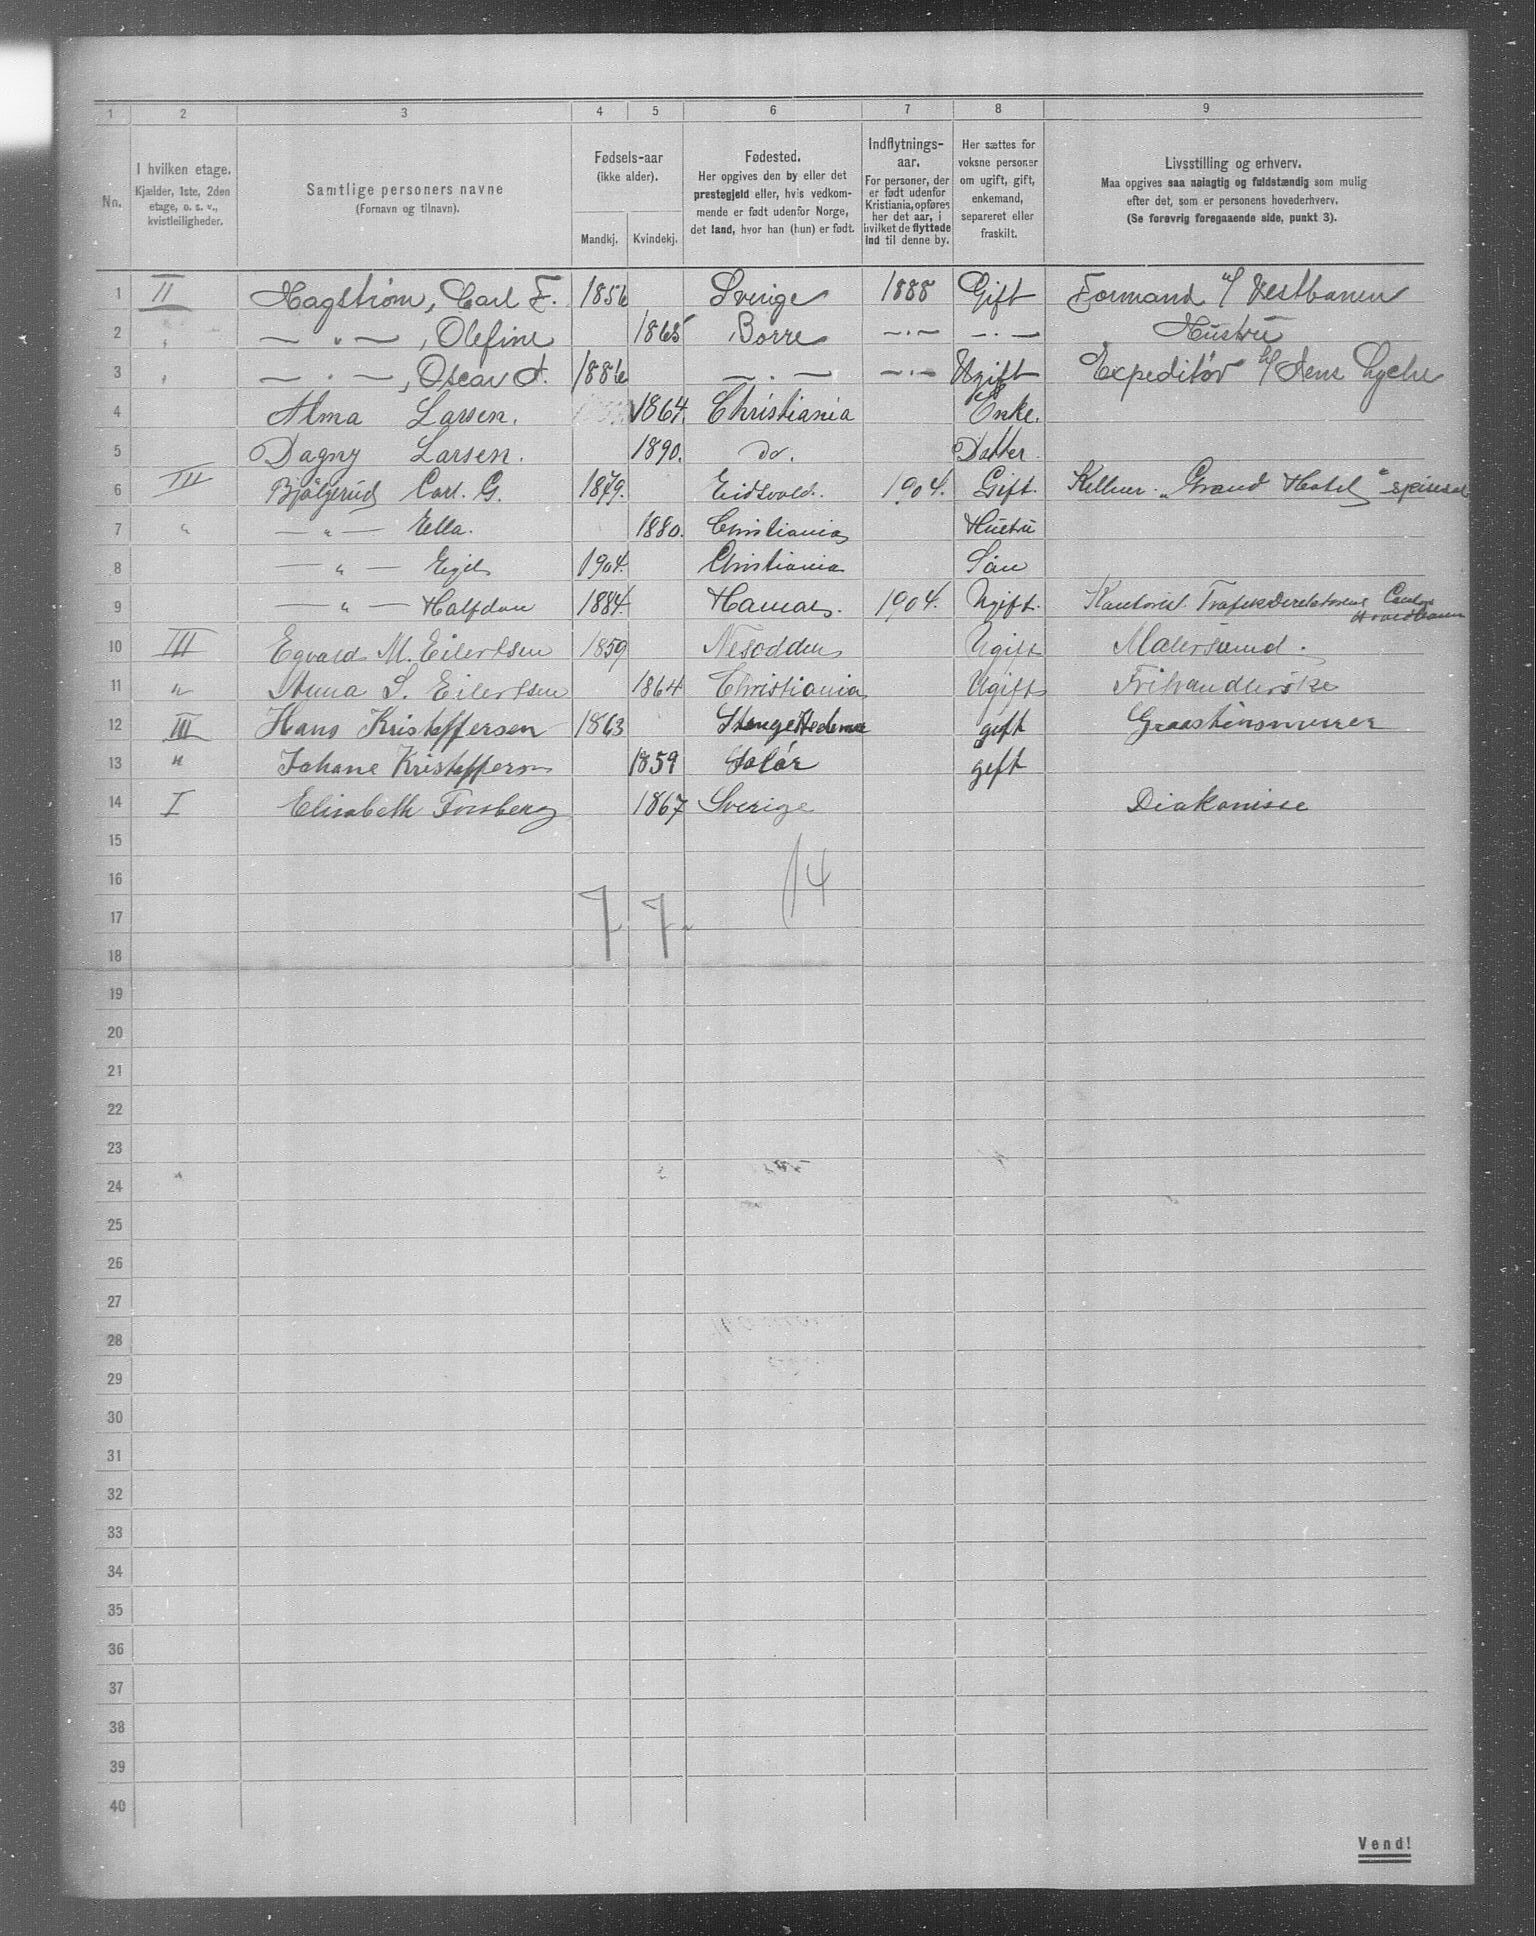 1 2 3 4 5 6 7 8 9
No.
I hvilken etage.
Kjælder, 1ste, 2den
etage, o. s. v.,
kvistleiligheder.
Samtlige personers navne
(Fornavn og tilnavn).
Fødsels-aar
(ikke alder).
Mandkj. Kvindekj.
Fødested.
Her opgives den by eller det
prestegjeld eller, hvis vedkom-
mende er født udenfor Norge,
det land, hvor han (hun) er født.
Indflytnings-
aar.
For personer, der
er født udenfor
Kristiania, opføres
her det aar, i
hvilket de flyttede
ind til denne by.
Her sættes for
voksne personer
om ugift, gift,
enkemand,
separeret eller
fraskilt.
Livsstilling og erhverv.
Maa opgives saa nøiagtig og fuldstændig som mulig
efter det, som er personens hovederhverv.
(Se forøvrig foregaaende side, punkt 3).
1 II Hagstrøm, Carl F. 1856 Sverige 1888 Gift Formand v/ Vestbanen
2 " — " — , Olefine 1865 Borre — . — — . — Hustru
3 " — " — , Oscar A. 1886 — . — — . — Ugift Expeditør h/ Jens Lyche
4 Alma Larsen. 1864. Christiania Enke.
5 Dagny Larsen. 1890. do. Datter.
6 III Bjølgerud Carl. G. 1879. Eidsvold. 1904. Gift. Kellner. „Grand Hotel" spisesal
7 " — " — Ella. 1880. Christiania Hustru
8 — " — Egil 1904. Christiania Søn
9 — " — Halfdan 1884. Hamar. 1904. Ugift. Kontorist. Hovedbanen
10 III Egvald M. Eilertsen 1859 Nesodden Ugift Malersvend.
11 " Anna S. Eilertsen 1864 Christiania Ugift Frihandlerske
12 III Hans Kristoffersen 1863 Stange Hedemar gift Graastensmurer
13 " Johane Kristoffersen 1859 Solør gift
14 I Elisabeth Forsberg 1867 Sverige Diakonisse
15
16 14
17 7 7
18
19
20
21
22
23
24
25
26
27
28
29
30
31
32
33
34
35
36
37
38
39
40
Vend!